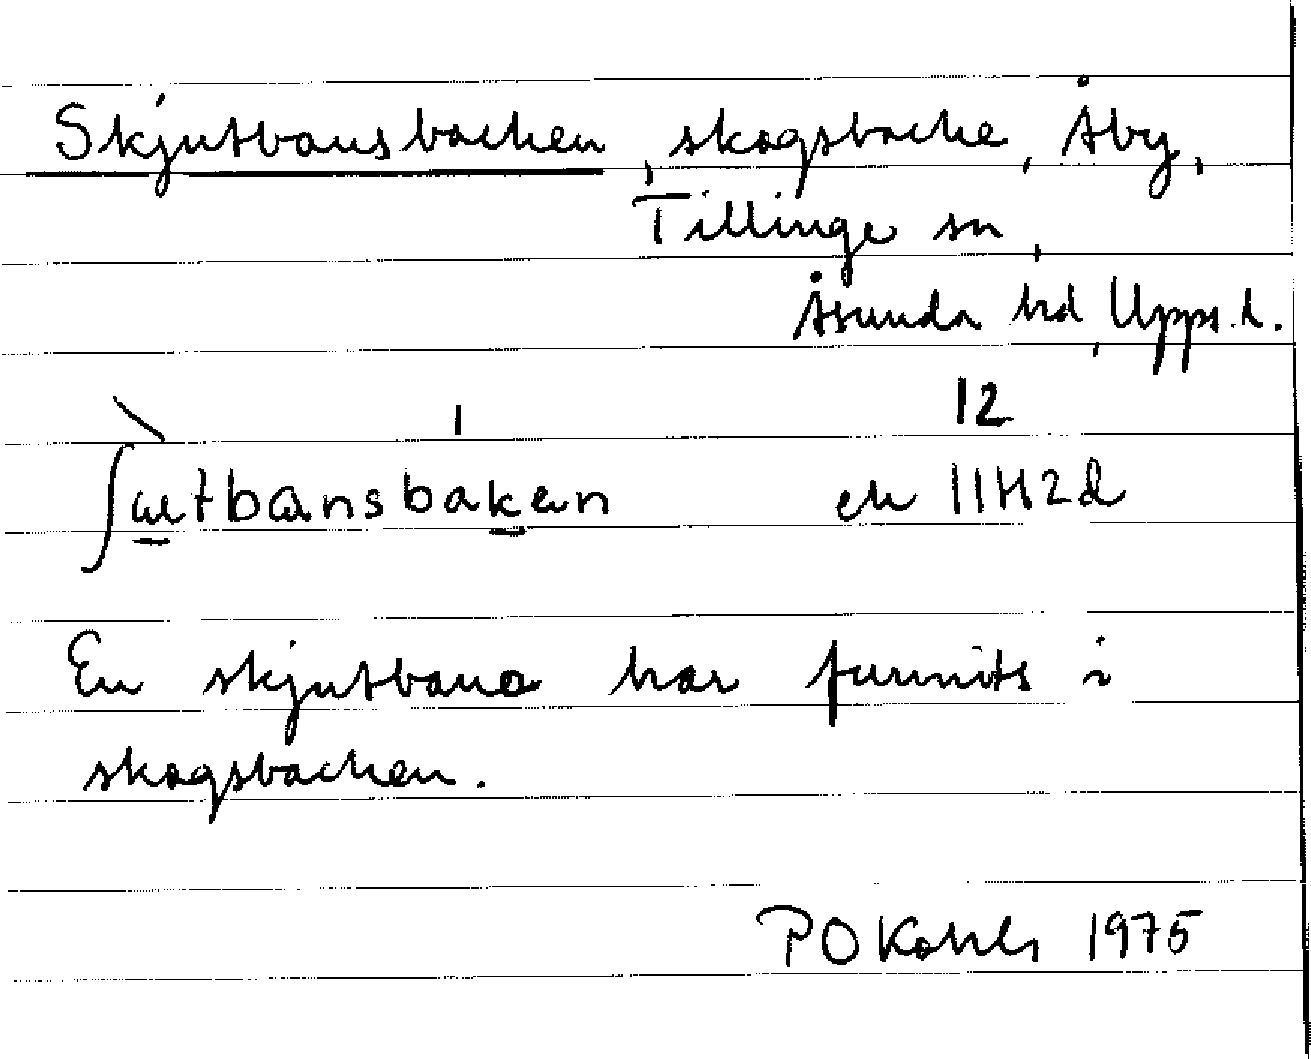 Skjutbansbacken, skogsbacke, Åby,
Tillinge sn,
Åsunda hd, Upps. l.
12
ek 11H2d
En skjutbana har funnits i
skogsbacken.
P O Kohls 1975